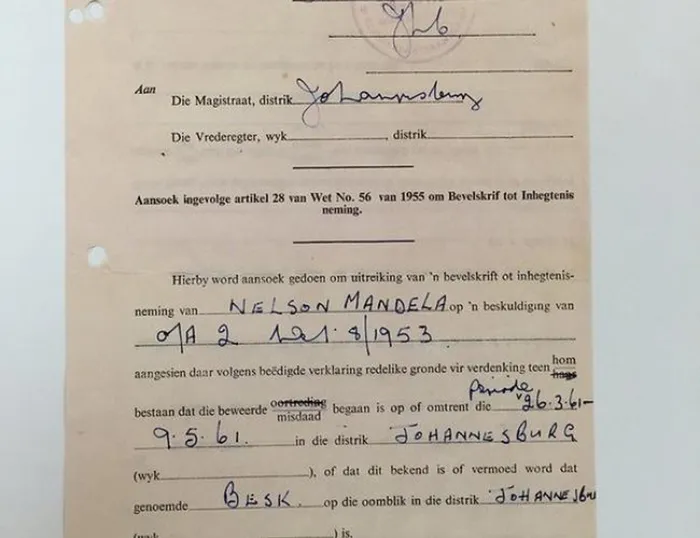 Jhb
Aan
Die Magistraat, distrik Johannesburg
Die Vrederegter, wyk , distrik
Aansoek ingevolge artikel 28 van Wet No. 56 van 1955 om Bevelskrif tot Inhegtenis
neming.
Hierby word aansoek gedoen om uitreiking van 'n bevelskrift ot inhegtenis-
neming van NELSON MANDELA op 'n beskuldiging van
o/A 2 Wet 8/1953
aangesien daar volgens beëdigde verklaring redelike gronde vir verdenking teen hom
haar
periode
bestaan dat die beweerde oortreding misdaad begaan is op of omtrent die 26.3.61-
9.5.61. in die distrik JOHANNESBURG
(wyk ), of dat dit bekend is of vermoed word dat
genoemde BESK. op die oomblik in die distrik JOHANNESBU
(wyk ) is.